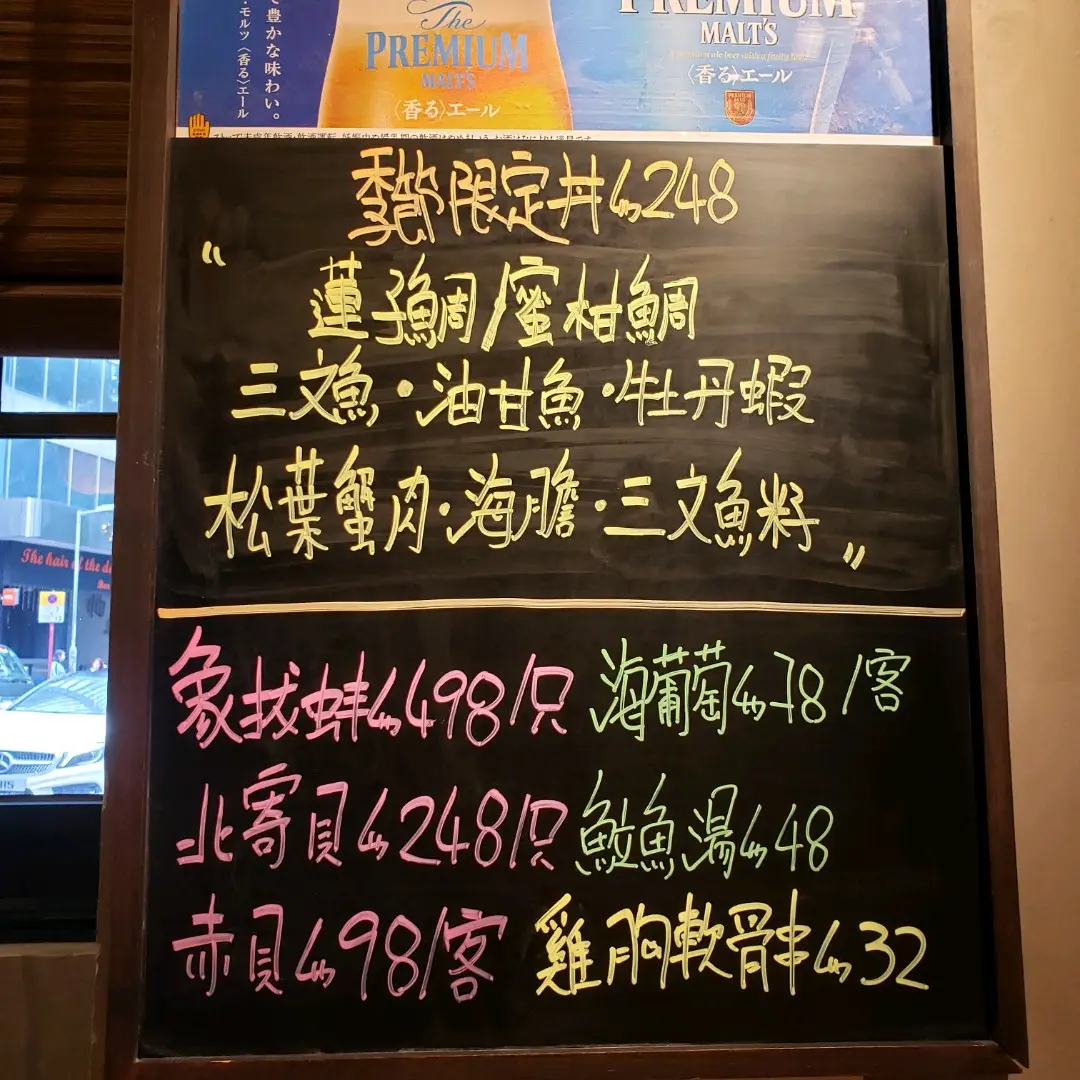 で豊かな味わい。
・モルツ〈香る〉エール
The
PREMIUM
MALT'S
〈香る〉エール
PREMIUM
MALT'S
〈香る〉エール
季節限定丼$248
“蓮子鯛/蜜柑鯛
三文魚・油甘魚・牡丹蝦
松葉蟹肉・海膽・三文魚籽”
象拔蚌$498/只
海葡萄$78/客
北寄貝$248/只
魚湯$48
赤貝$98/客
雞胸軟骨串$32
The hair of the